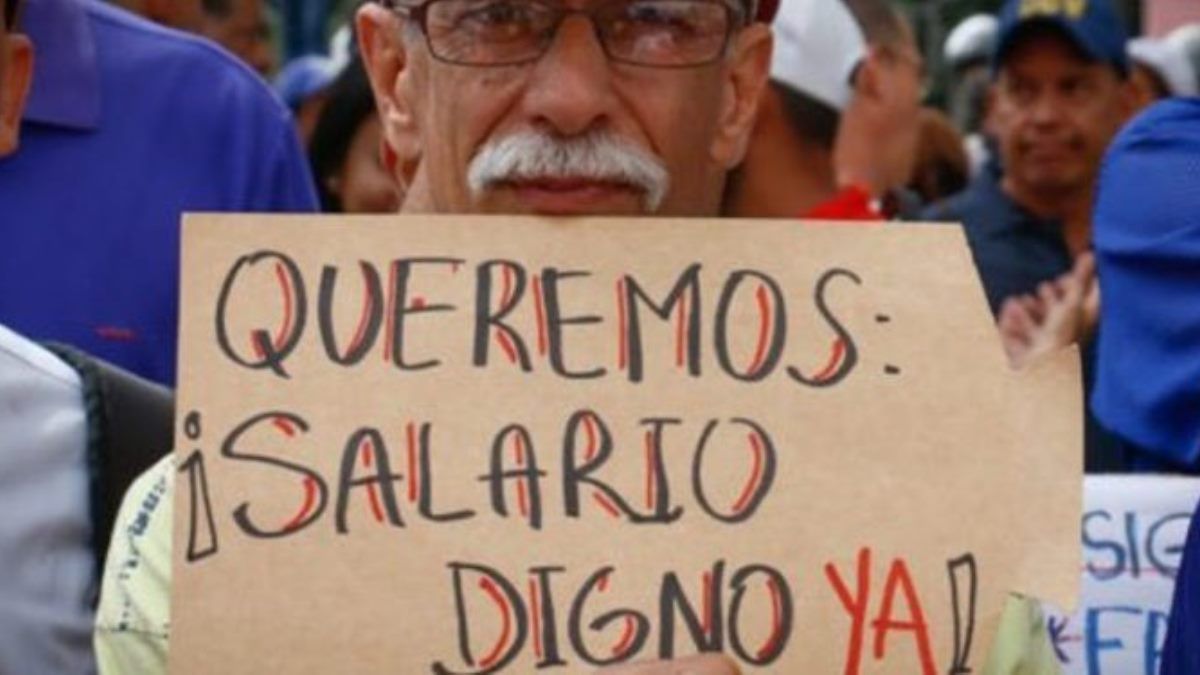 QUEREMOS:
¡SALARIO
DIGNO YA!